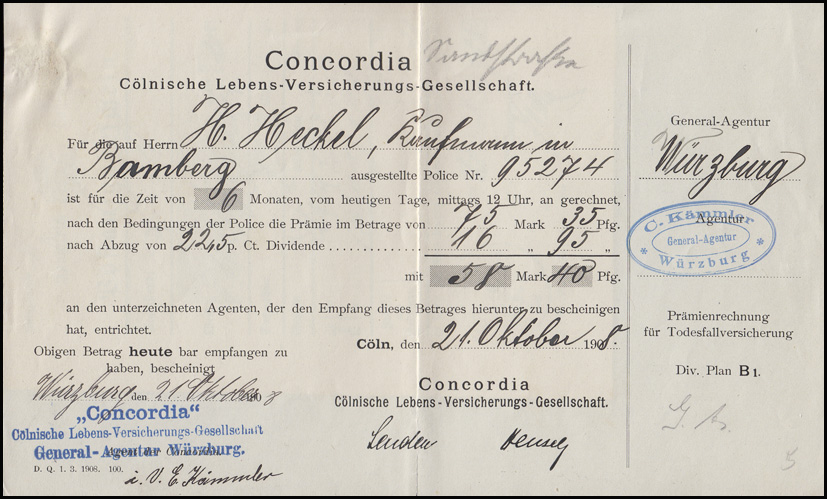 Concordia Sandstrasse
Cölnische Lebens-Versicherungs-Gesellschaft.
Für die auf Herrn H. Heckel, Kaufmann in
Bamberg ausgestellte Police Nr. 95274
ist für die Zeit von 6 Monaten, vom heutigen Tage, mittags 12 Uhr, an gerechnet,
nach den Bedingungen der Police die Prämie im Betrage von 75 Mark 35 Pfg.
nach Abzug von 22,5 p. Ct. Dividende 16 „ 95 „
mit 58 Mark 40 Pfg.
an den unterzeichneten Agenten, der den Empfang dieses Betrages hierunter zu bescheinigen
hat, entrichtet.
Cöln, den 21. Oktober 1908.
Obigen Betrag heute bar empfangen zu
haben, bescheinigt
Würzburg den 21 Oktober 1908
„Concordia“
Cölnische Lebens-Versicherungs-Gesellschaft
General-Agentur Würzburg.
D. Q. 1. 3. 1908. 100.
i. V. E. Kämmler
Concordia
Cölnische Lebens-Versicherungs-Gesellschaft.
General-Agentur
Würzburg
Agentur
C. Kämmler
General-Agentur
* Würzburg *
Prämienrechnung
für Todesfallversicherung
Div. Plan B1.